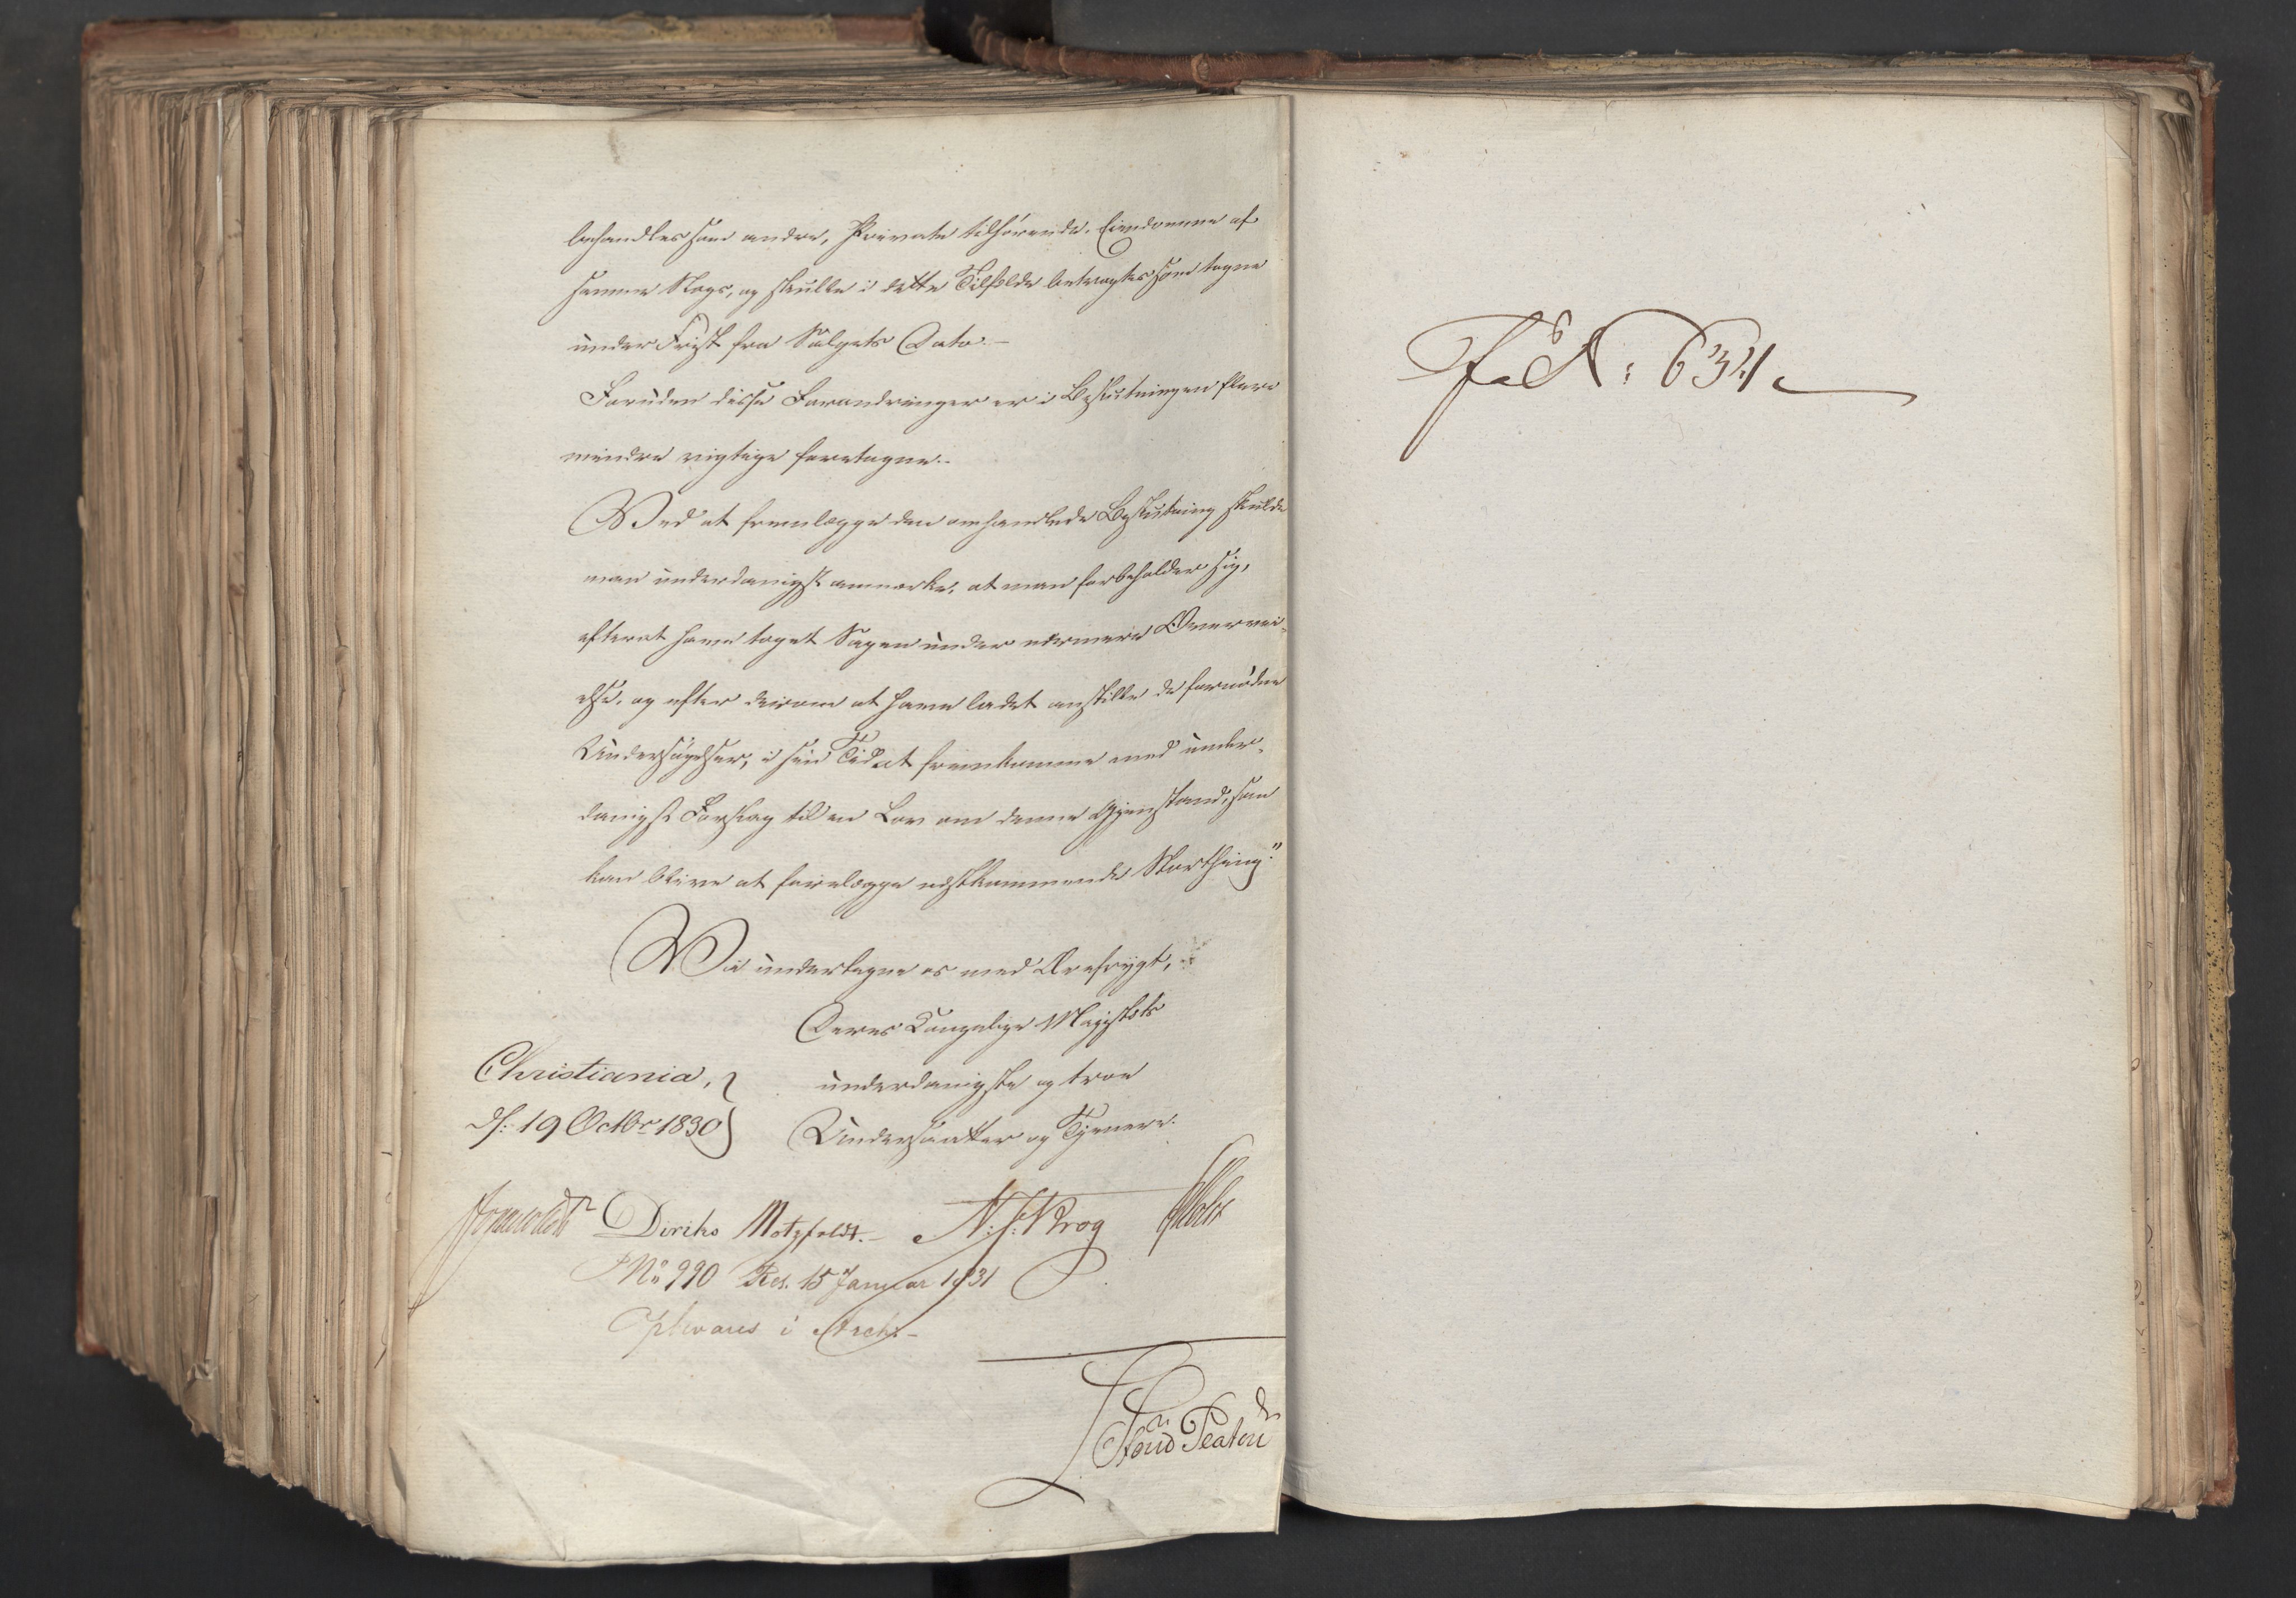 behandles som andre, Private tilhørende, Eiendomme af
samme Slags, og skulle i dette Tilfælde betragtes som tagne
under Frist fra Salgets Dato.-
Foruden disse Forandringer er i Beslutningen flere
mindre vigtige foretagne.-
Ved at fremlægge den omhandlede Beslutning skulde
man underdanigst anmærke, at man forbeholder sig,
efterat have taget Sagen under nærmere Overvei-
else, og efter derom at have ladet anstille de fornødne
Undersøgelser, i sin Tid at fremkomme med under-
danigst Forslag til en Lov om denne Gjenstand, som
kan blive at forelægge næstkommende Storthing."
Vi undertegne os med Ærefrygt,
Deres Kongelige Majestæts
Christiania,
underdanigste og troe
d: 19 Octbr 1830
Undersaatter og Tjenere.
Diriks Motzfeldt.- N: J: Krog
No 990 Res. 15 Januar 1831
Opbevares i Arch.-
No: 634